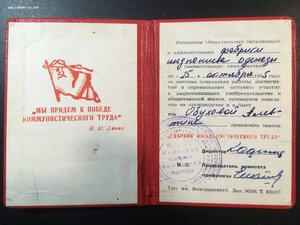 "МЫ ПРИДЕМ К ПОБЕДЕ
КОММУНИСТИЧЕСКОГО ТРУДА"
В. И. Ленин
Решением общественных организаций
и администрации фабрики
индпошива одежды
(наименование предприятия)
5 октября
за высокие показатели работы, достигнутые
в соревновании, активное участие
в рационализации, изобретательстве и
общественной жизни, примерное поведение
на производстве и в быту
Обуховой
присвоено звание
"УДАРНИК КОММУНИСТИЧЕСКОГО ТРУДА"
Директор
Председатель комитета
профсоюза
Тип. им. Володарского. Зак. 9036. Т. 85000